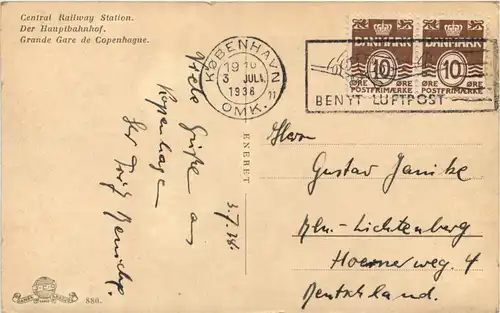 Central Railway Station.
Der Hauptbahnhof.
Grande Gare de Copenhague.
KØBENHAVN
19
3 JULI
1938
OMK. 11
DANMARK DANMARK
10 10
ØRE ØRE ØRE ØRE
POSTFRIMÆRKE POSTFRIMÆRKE
BENYT LUFTPOST
Viele Grüße aus
Kopenhagen
Fritz
3.7.38.
ENERET
Herrn
Gustav Janike
Bln.-Lichtenberg
Hoenerweg 4
Deutschland.
886.